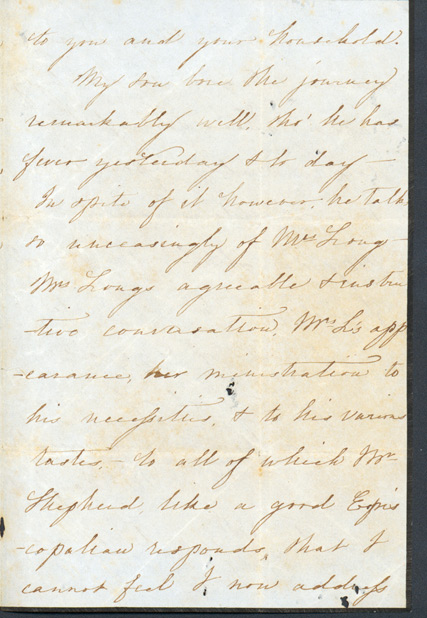 to you and your household.
My son bore the journey
remarkably well, tho' he has
fever yesterday & to day –
In spite of it however, he talks
so unceasingly of Mrs Long –
Mrs Longs agreeable & instru
-tive conversation, Mrs L's app
-earance, her ministration to
his necessities, & to his various
tastes, – to all of which Mr
Shepherd, like a good Epis
-copalian responds, that I
cannot feel I now address